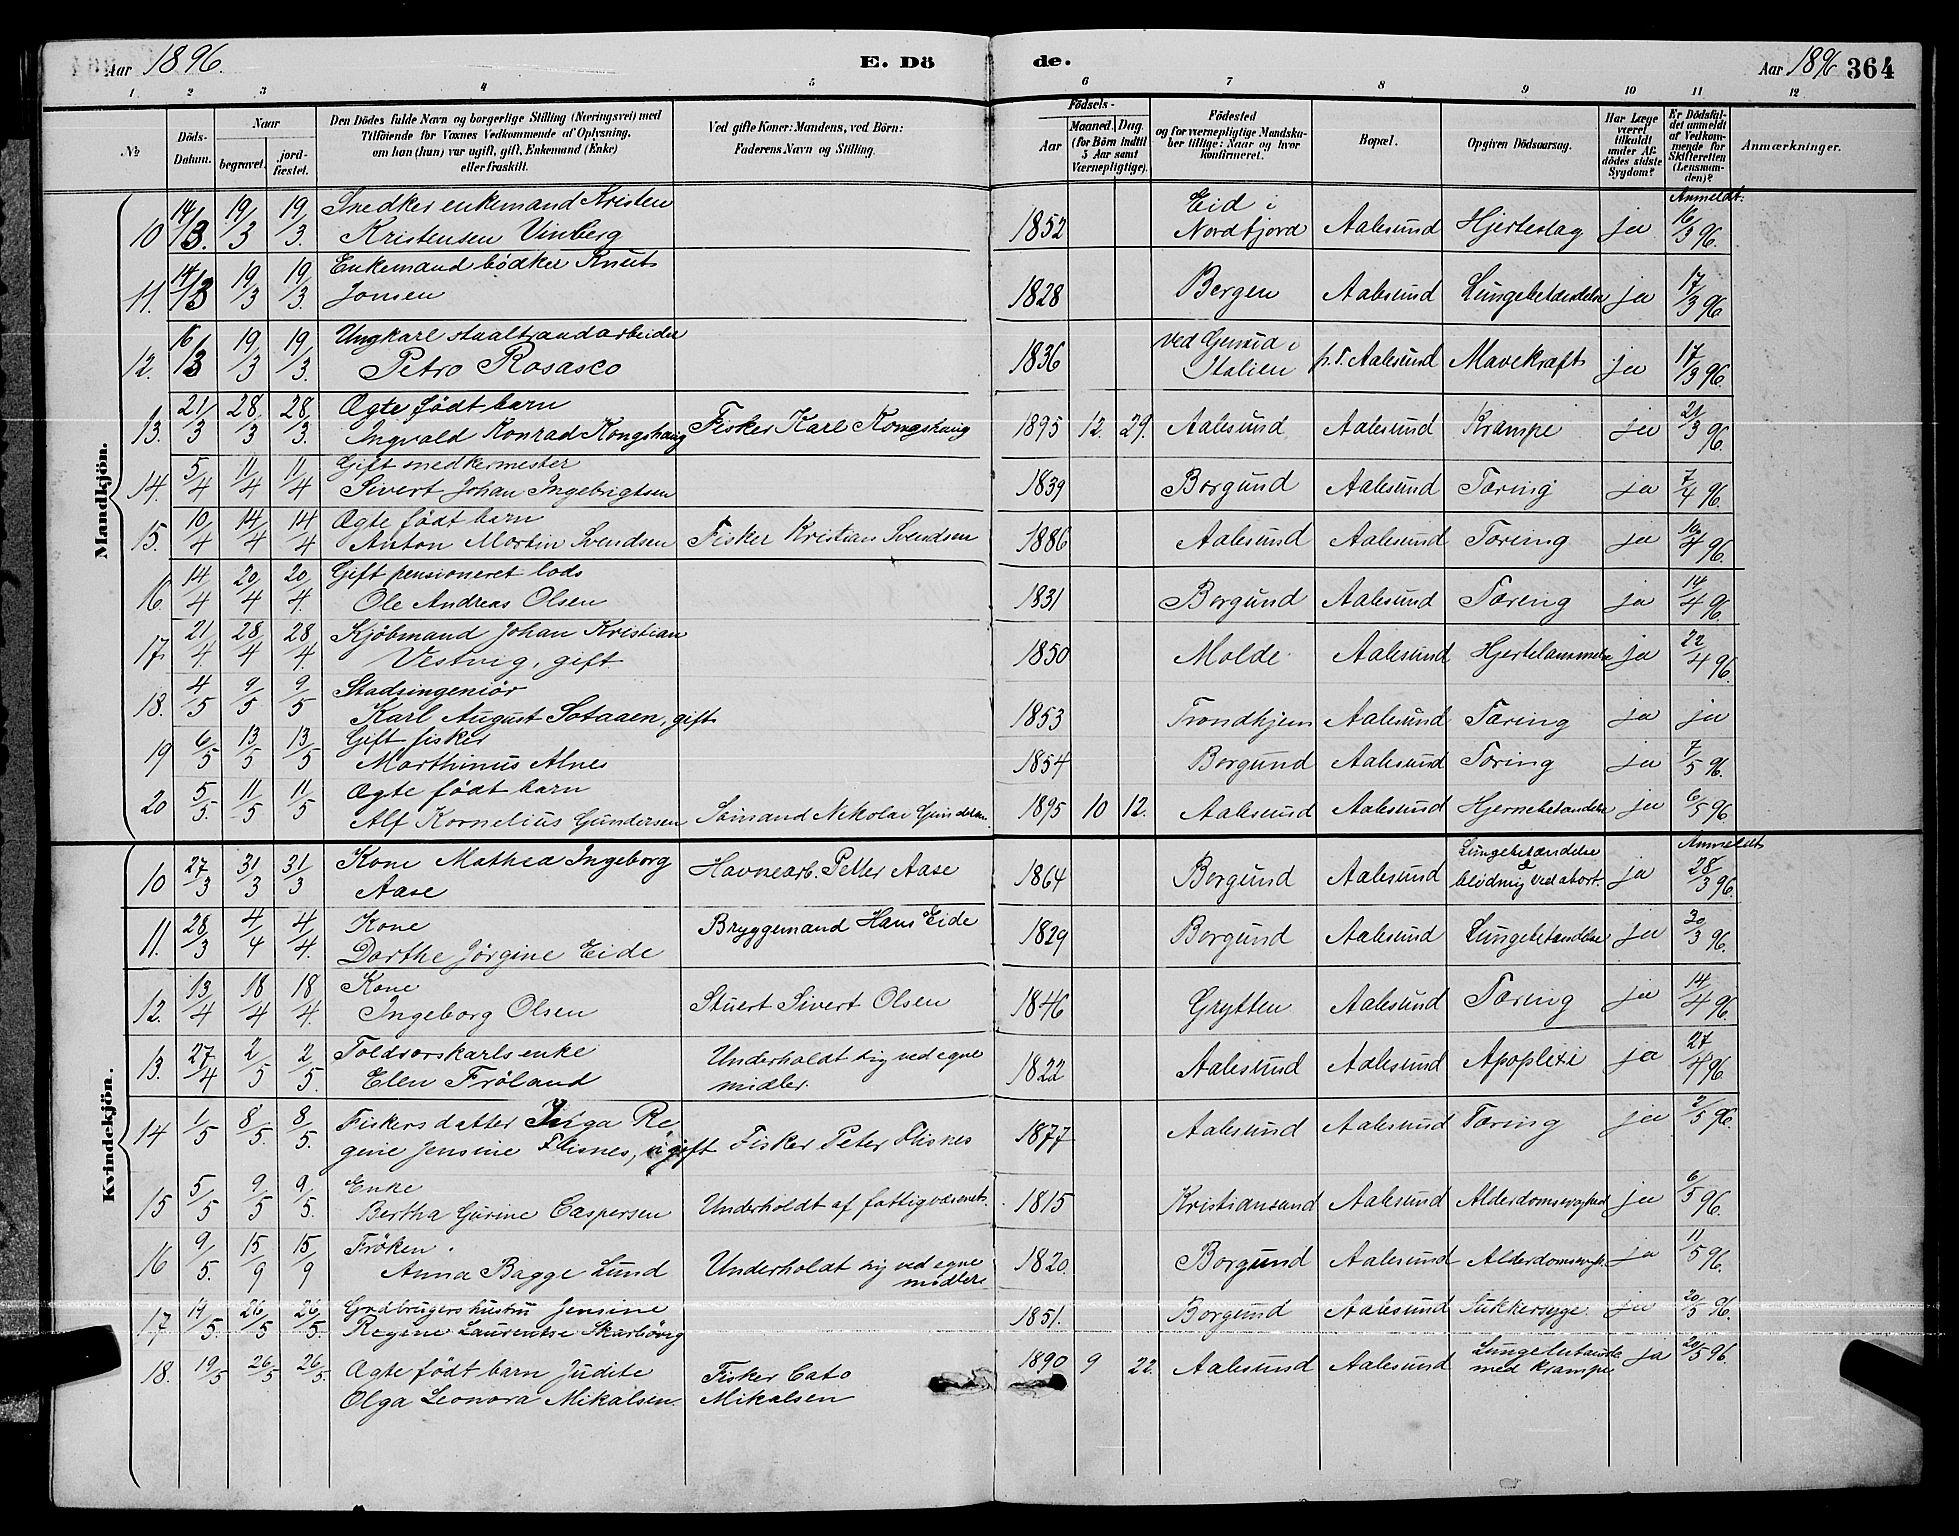 Aar 1896.
E. Dö
de.
Aar 1896 364
1. 2 3 4 5 6 7 8 9 10 11 12
No
Döds-Datum.
Naar
begravet.
jord-fæstet.
Den Dödes fulde Navn og borgerlige Stilling (Næringsvei) med
Tilföiende for Voxnes Vedkommende af Oplysning,
om han (hun) var ugift, gift, Enkemand (Enke)
eller fraskilt.
Ved gifte Koner: Mandens, ved Börn:
Faderens Navn og Stilling.
Födsels-
Aar
Maaned. Dag.
(for Börn indtil
5 Aar samt
Værnepligtige).
Födested
og for værnepligtige Mandska-
ber tillige: Naar og hvor
konfirmeret.
Bopæl.
Opgiven Dödsaarsag.
Har Læge
været
tilkaldt
under Af-
dödes sidste
Sygdom?
Er Dödsfal-
det anmeldt
af Vedkom-
mende for
Skifteretten
(Lensman-
den)?
Anmærkninger.
Mandkjön.
Anmeldt.
10 14/3. 19/3 19/3. Snedker enkemand Kristen
Kristensen Vinberg 1852 Eid i Nordfjord Aalesund Hjerteslag ja 16/3 96.
11. 14/3 19/3 19/3. Enkemand bödker Knut
Jonsen 1828 Bergen Aalesund Lungebetændelse ja 17/3 96.
12. 16/3 19/3 19/3. Ungkarl staaltraadarbeider
Petro Rosasco 1836 ved Genua i Italien p.T. Aalesund Mavekræft ja 17/3 96.
13. 21/3 28/3 28/3. Ægte födt barn
Ingvald Konrad Kongshaug Fisker Karl Kongshaug 1895 12. 29. Aalesund Aalesund Krampe ja 21/3 96.
14. 5/4 11/4 11/4 Gift snedkermester
Sivert Johan Ingebrigtsen 1839 Borgund Aalesund Tæring ja 7/4 96.
15. 10/4 14/4 14/4 Ægte födt barn
Anton Martin Svendsen Fisker Kristian Svendsen 1886 Aalesund Aalesund Tæring ja 10/4 96.
16. 14/4 20/4 20/4. Gift pensioneret lods
Ole Andreas Olsen 1831 Borgund Aalesund Tæring ja 14/4 96.
17. 21/4. 28/4 28/4. Kjöbmand Johan Kristian
Vestvig, gift 1850 Molde Aalesund Hjertelammelse ja 22/4 96.
18. 4/5 9/5 9/5 Stadsingeniör
Karl August Sotaaen, gift 1853 Trondhjem Aalesund Tæring ja ja
19 6/5 13/5 13/5 Gift fisker
Marthinus Alnes 1854 Borgund Aalesund Tæring ja 7/5 96.
20 5/5. 11/5 11/5 Ægte födt barn
Alf Kornelius Gundersen Sömand Nikolai Gundersen 1895 10 12. Aalesund Aalesund Hjernebetændelse ja 6/5 96.
Kvindekjön.
Anmeldt
10 27/3 31/3 31/3 Kone Mathea Ingeborg
Aase Havnearb. Petter Aase 1864 Borgund Aalesund Lungebetændelse & blödning ved abort. ja 28/3 96.
11. 28/3 4/4 4/4. Kone
Dorthe Jörgine Eide Bryggemand Hans Eide 1829 Borgund Aalesund Lungebetændelse ja 30/3 96.
12. 13/4 18/4 18/4. Kone
Ingeborg Olsen Stuert Sivert Olsen 1846 Grytten Aalesund Tæring ja 14/4 96.
13. 27/4 2/5 2/5. Toldrorskarls enke
Elen Fröland Underholdt sig ved egne midler. 1822 Aalesund Aalesund Apoplexi ja 27/4 96
14 1/5 8/5 8/5. Fiskersdatter Inga Re
gine Jensine Flisnes, ugift Fisker Peter Flisnes 1877 Aalesund Aalesund Tæring ja 2/5 96.
15 5/5 9/5 9/5. Enke
Bertha Gurine Caspersen Underholdt af fattigvæsenet. 1815 Kristiansund Aalesund Alderdomssvaghed ja 6/5 96.
16 9/5. 15/9 15/9 Fröken.
Anna Bagge Lund Underholdt sig ved egne midler 1820. Borgund Aalesund Alderdomssvagh. ja 11/5 96.
17 14/5. 26/5 26/5. Grdbrugers hustru Jensine
Regine Laurentse Skarbövig 1851. Borgund Aalesund Sukkersyge. ja 20/5 96.
18. 19/5 26/5 26/5. Ægte födt barn Judite
Olga Leonora Mikalsen. Fisker Cato Mikalsen 1890 9 22. Aalesund Aalesund Lungebetænde med krampe ja 20/5 96.